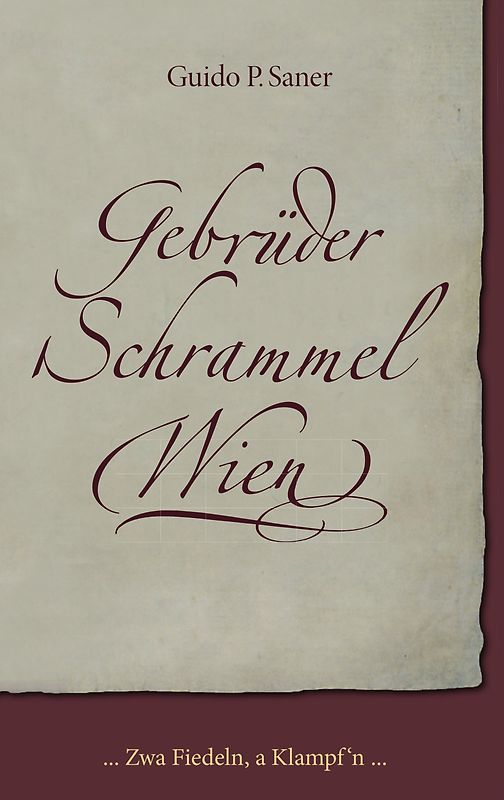 Guido P. Saner
Gebrüder
Schrammel
Wien
... Zwa Fiedeln, a Klampf‘n ...